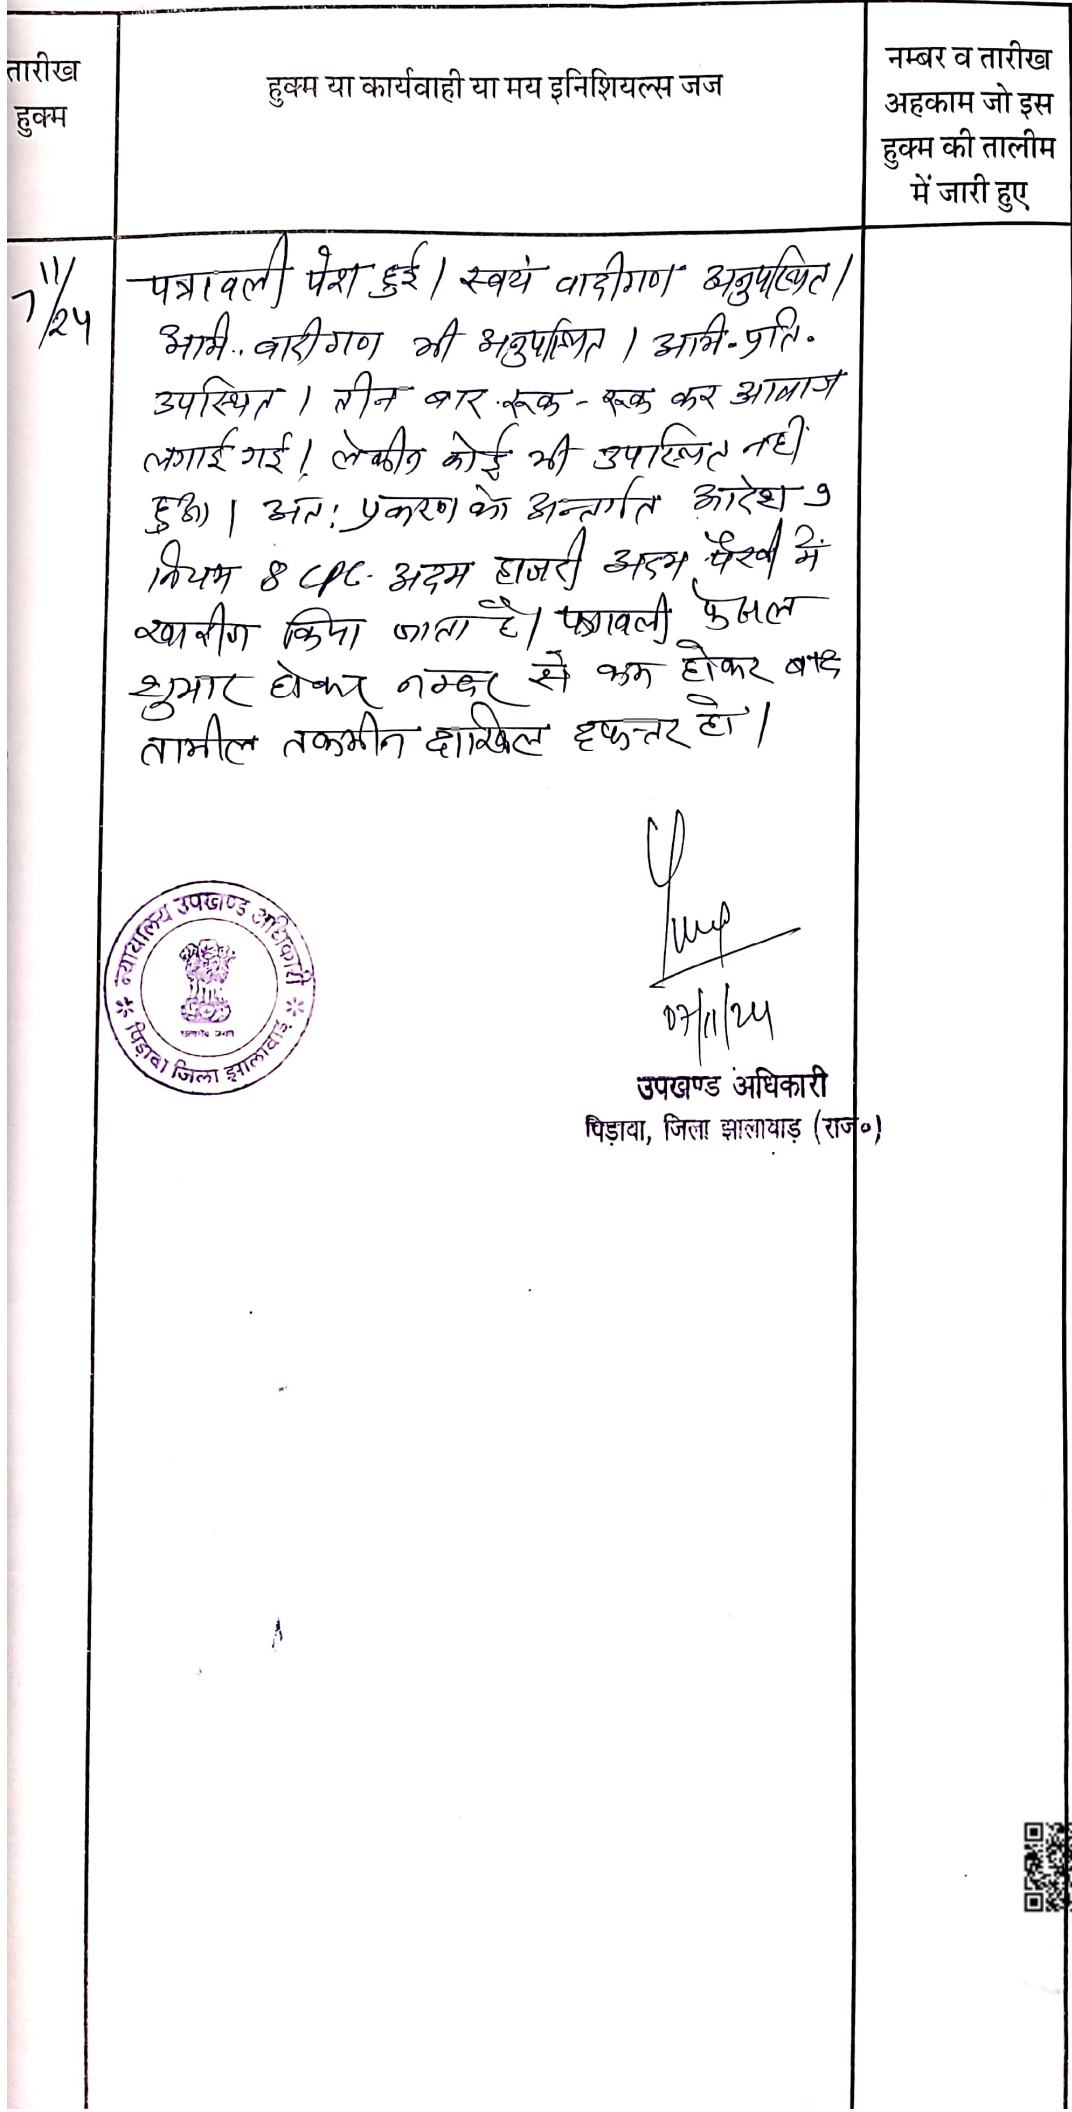 तारीख
हुक्म
हुक्म या कार्यवाही या मय इनिशियल्स जज
नम्बर व तारीख
अहकाम जो इस
हुक्म की तालीम
में जारी हुए
7/11/24
पत्रावली पेश हुई। स्वयं वादीगण अनुपस्थित।
अभि. वादीगण भी अनुपस्थित। अभि-प्रति.
उपस्थित। तीन बार रूक-रूक कर आवाज
लगाई गई। लेकीन कोई भी उपस्थित नहीं
हुआ। अतः प्रकरण को अन्तर्गत आदेश 9
नियम 8 CPC. अदम हाजरी अदम पैरवी में
खारीज किया जाता है। पत्रावली फैसल
शुमार होकर नम्बर से कम होकर बाद
तामील तकमील दाखिल दफ्तर हो।
07/11/24
न्यायालय उपखण्ड अधिकारी
पिड़ावा जिला झालावाड़
उपखण्ड अधिकारी
पिड़ावा, जिला झालावाड़ (राज०)